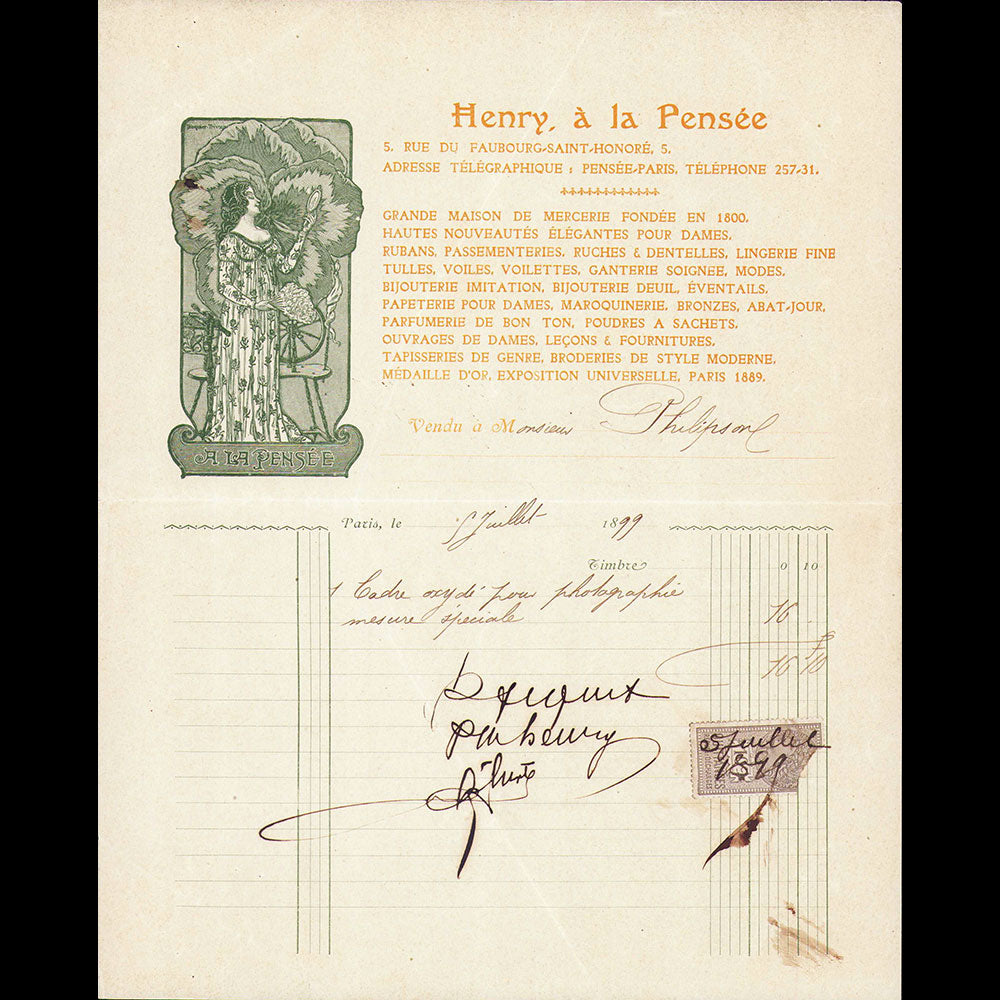 Henry, à la Pensée
5, RUE DU FAUBOURG-SAINT-HONORÉ, 5.
ADRESSE TÉLÉGRAPHIQUE : PENSÉE-PARIS, TÉLÉPHONE 257-31.
GRANDE MAISON DE MERCERIE FONDÉE EN 1800.
HAUTES NOUVEAUTÉS ÉLÉGANTES POUR DAMES,
RUBANS, PASSEMENTERIES, RUCHES & DENTELLES, LINGERIE FINE
TULLES, VOILES, VOILETTES, GANTERIE SOIGNEE, MODES,
BIJOUTERIE IMITATION, BIJOUTERIE DEUIL, ÉVENTAILS,
PAPETERIE POUR DAMES, MAROQUINERIE, BRONZES, ABAT-JOUR,
PARFUMERIE DE BON TON, POUDRES A SACHETS,
OUVRAGES DE DAMES, LEÇONS & FOURNITURES,
TAPISSERIES DE GENRE, BRODERIES DE STYLE MODERNE.
MÉDAILLE D'OR, EXPOSITION UNIVERSELLE, PARIS 1889.
Vendu à Monsieur Philipson
A LA PENSÉE
Paris, le 5 Juillet 1899
Timbre 0 10
1 Cadre oxydé pour photographie
mesure spéciale 16 .
16 10
5 juillet
1899